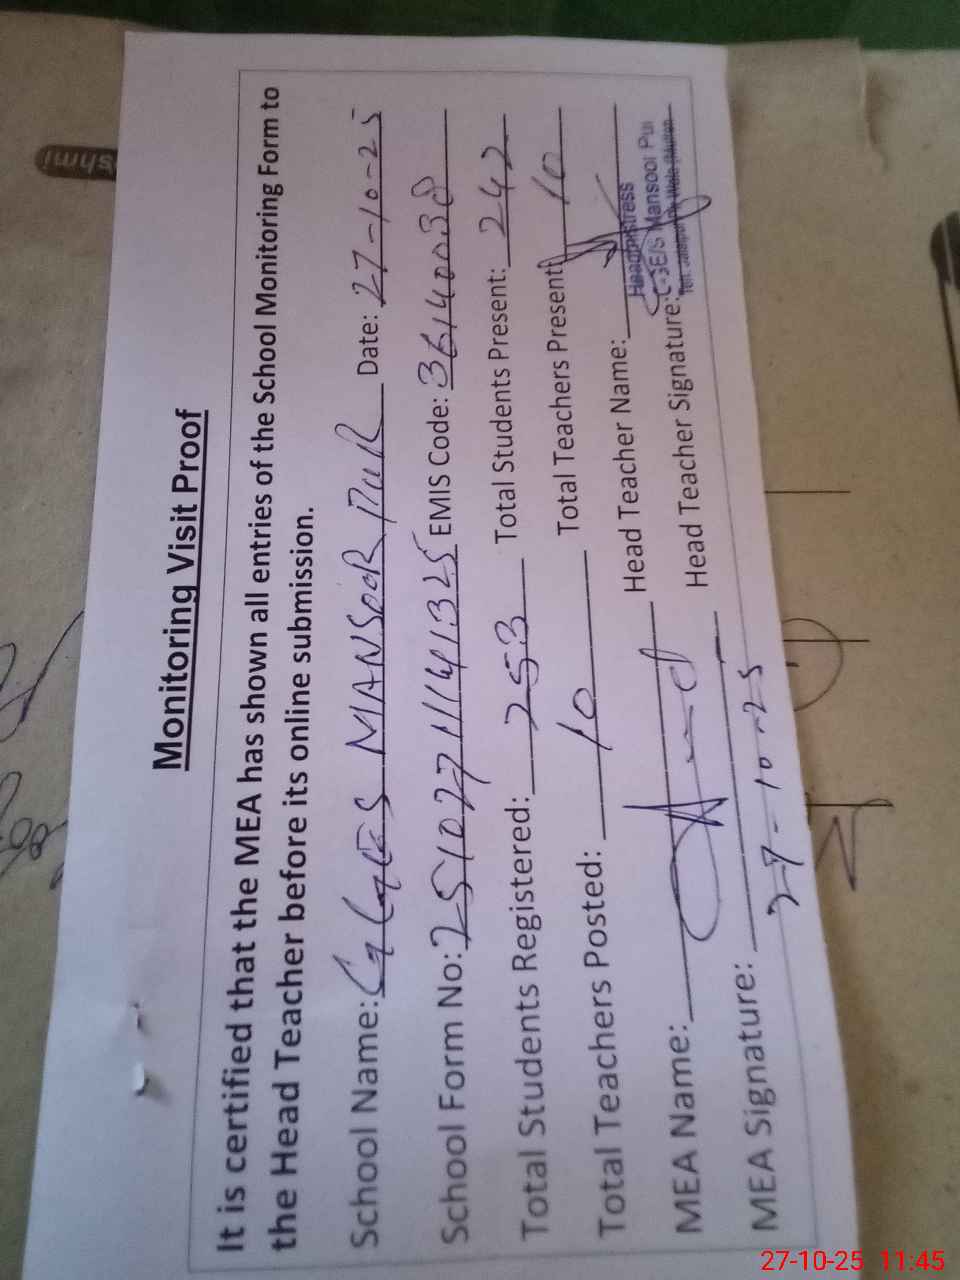 Monitoring Visit Proof
It is certified that the MEA has shown all entries of the School Monitoring Form to
the Head Teacher before its online submission.
School Name: GGES MANSOOR PUR Date: 27-10-25
School Form No: EMIS Code: 36140038
Total Students Registered: 253 Total Students Present: 242
Total Teachers Posted: 10 Total Teachers Present: 10
MEA Name: Head Teacher Name:
MEA Signature: Head Teacher Signature:
27-10-25
Headmistress
G.GE/S Mansool Pur
27-10-25 11:45